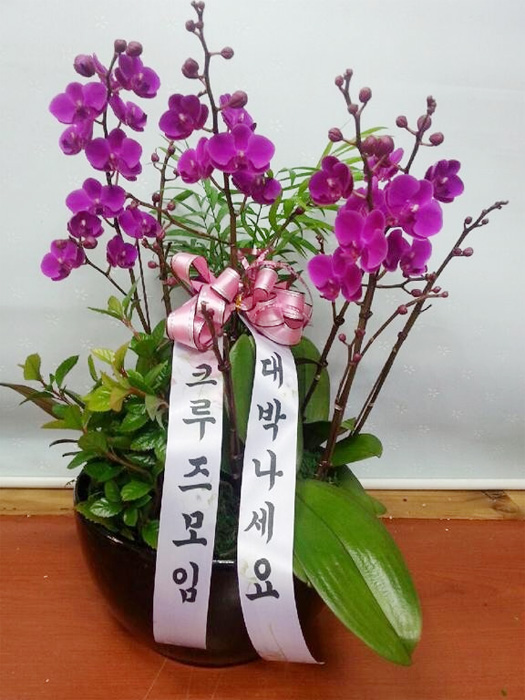 크루즈모임
대박나세요